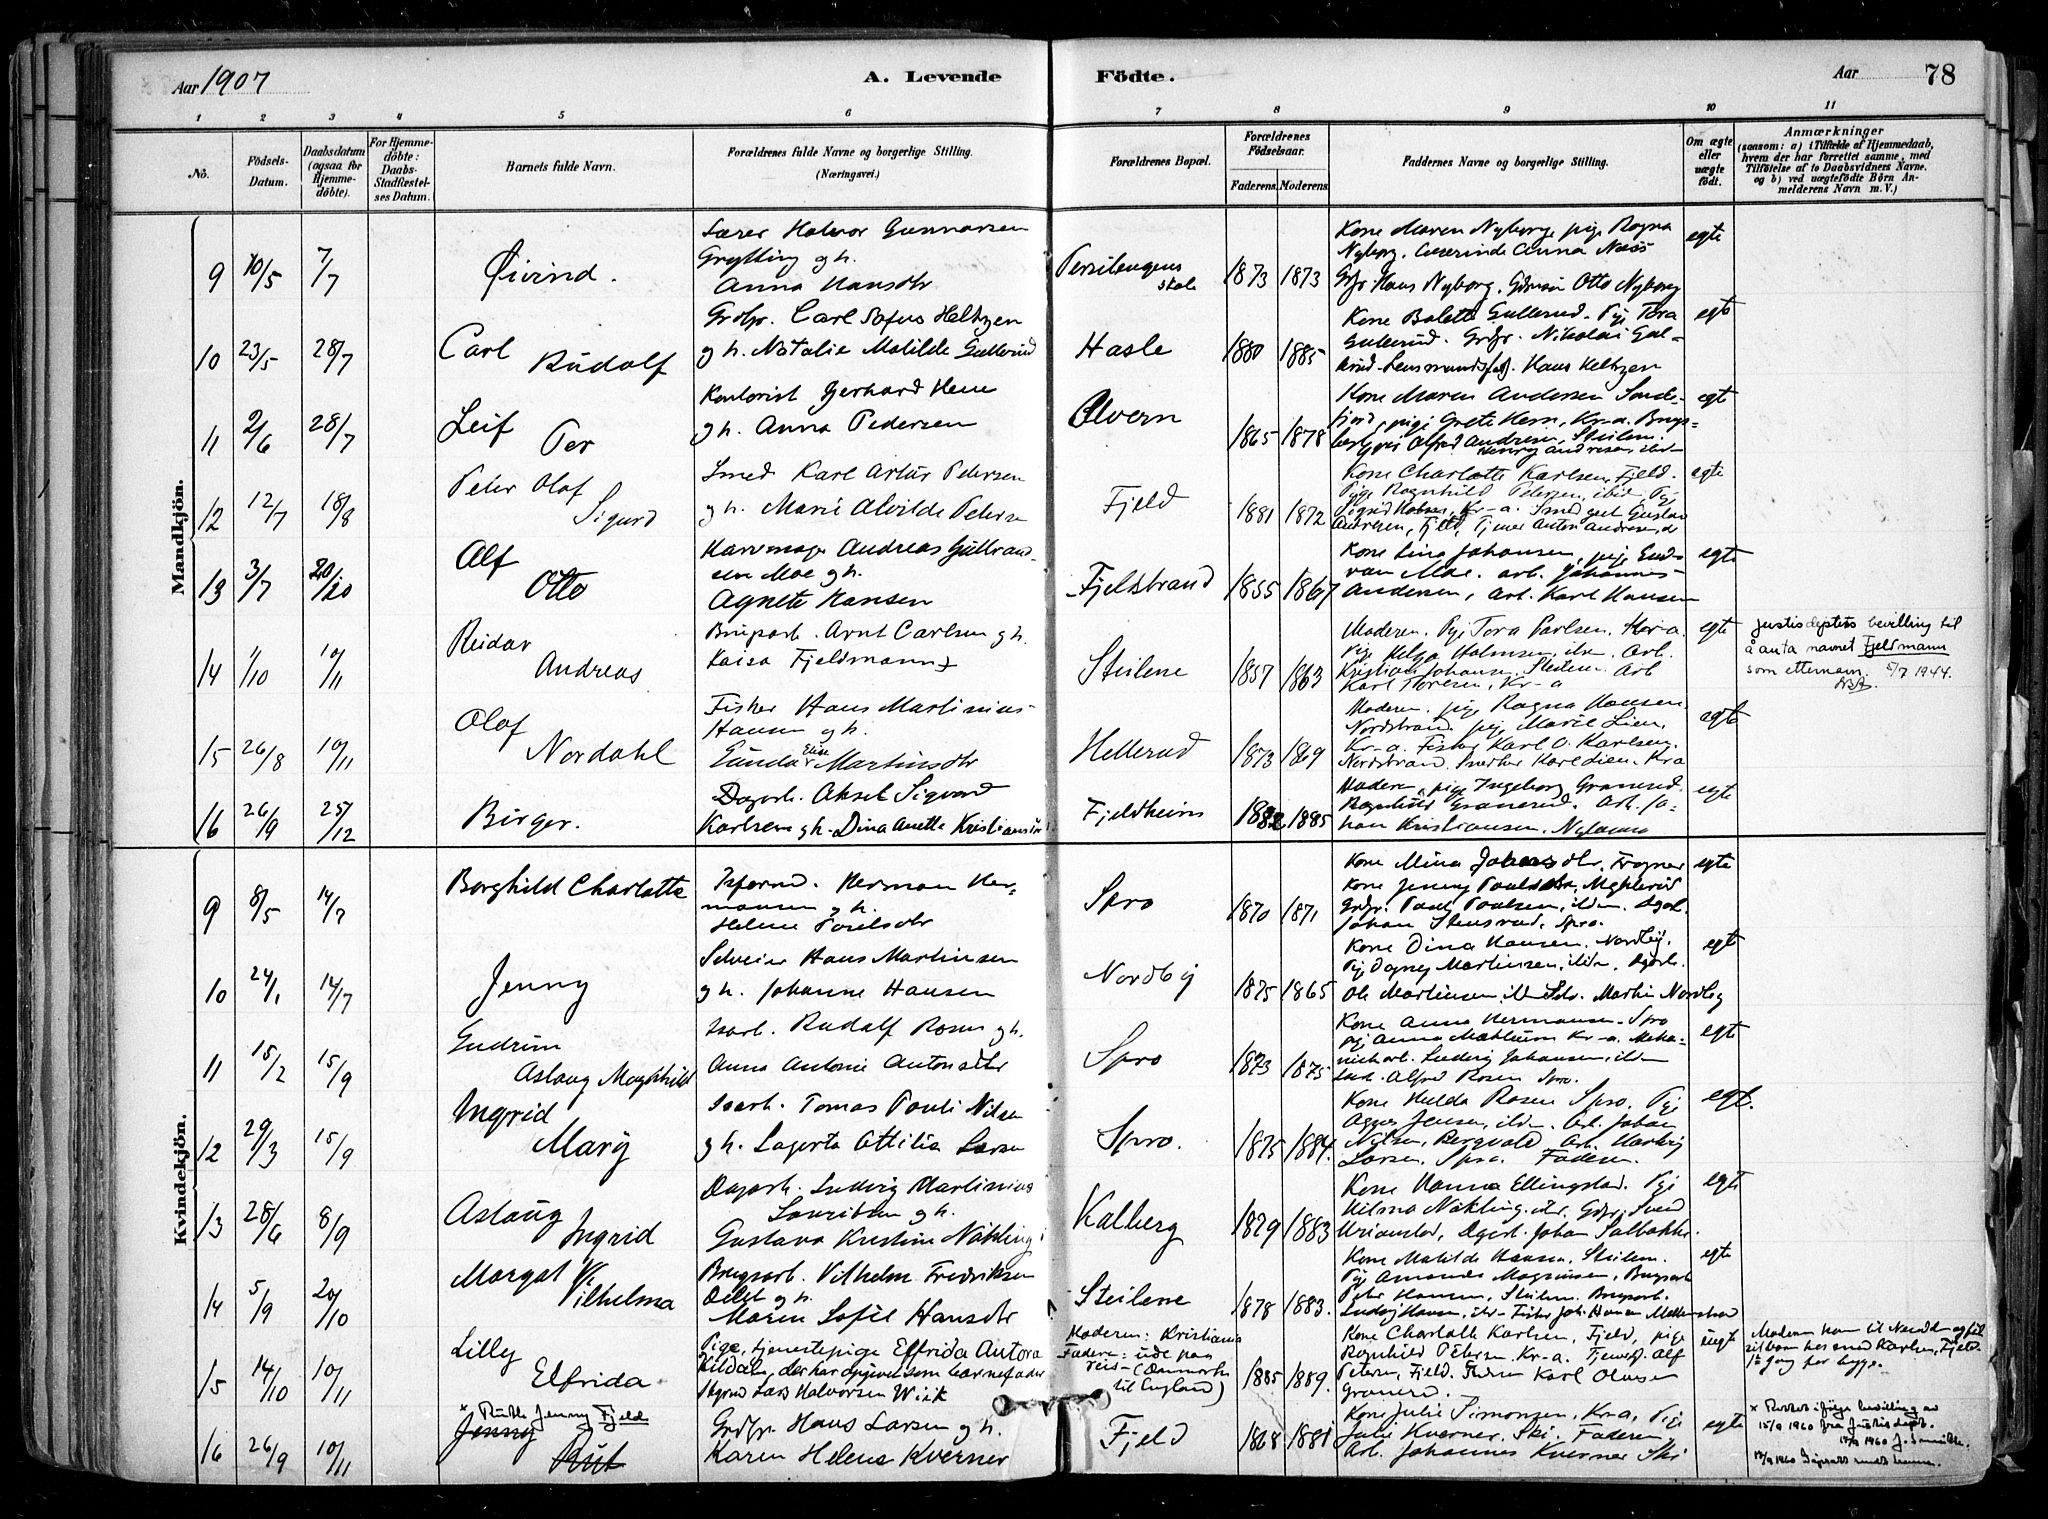 Aar 1907
A. Levende
Födte.
Aar
78
1 2 3 4 5 6 7 8 9 10 11
No.
Födsels-
Datum.
Daabsdatum
(ogsaa for
Hjemme-
döbte).
For Hjemme-
döbte:
Daabs-
Stadfæstel-
ses Datum.
Barnets fulde Navn.
Forældrenes fulde Navne og borgerlige Stilling.
(Næringsvei.)
Forældrenes Bopæl.
Forældrenes
Födselsaar.
Faderens. Moderens.
Faddernes Navne og borgerlige Stilling.
Om ægte
eller
uægte
födt.
Anmærkninger
(saasom: a) i Tilfælde af Hjemmedaab,
hvem der har forrettet samme, med
Tilföielse af to Daabsvidners Navne,
og b) ved uægtefödte Börn An-
melderens Navn m. V.)
Mandkjön.
9 10/5 7/7 Øivind.
Lærer Halvor Gunnarsen
Grytting gh.
Anna Hansdtr
1873 1873
Kone Maren Nyborg, pige Ragna
Nyborg, Lærerinde Anna Næss
Grfr. Hans Nyborg, Otto Nyborg
egte
10 23/5 28/7 Carl
Rudolf
Grdbr. Carl Sofus Heltzen
gh. Natalie Matilde Gullerud
Hasle
1880 1885
Kone Bolette Gullerud. Pige Tora
Gullerud. Grfr. Nikolai Gul-
Hans Heltzen
egte
11 2/6 28/7 Leif
Per
Kontorist Gerhard
gh. Anna Pedersen
Alvern
1865 1878
Kone Maren Andersen Sande-
fjord, pige Grete Kr-a. Brugs-
Alfred Andresen, Steilene.
Henry Andresen,
egte
12 12/7 18/8 Peter Olaf
Sigurd
Smed Karl Artur Petersen
gh. Marie Alvilde Petersen
Fjeld
1881 1872
Kone Charlotte Karlsen, Fjeld.
Pige Ragnhild Petersen, ibid. Pige
Sigrid Kr-a. Smed Gustav
Andresen, Fjeld, Tjener Anton Andresen,
egte
13 3/7 20/10 Alf
Otto
Andreas Gulbrand-
sen Moe gh.
Agnete Hansen
Fjeldstrand
1855 1867
Kone Lina Johansen, pige
Moe. arb. Johannes
Andersen, Arb. Karl Hansen
egte
14 1/10 10/11 Reidar
Andreas
Brugsarb. Arnt Carlsen gh.
Kaisa Fjeldmann
Steilene
1857 1863
Moderen. Pige Tora Carlsen. Kr-a.
Pige Helga Holmsen, Arb.
Kristian Johansen, Steilene. Arb
Karl Kr-a
egte
Justisdeptets bevilling til
å anta navnet Fjeldmann
som etternavn 5/7 1944.
15 26/8 10/11 Olaf
Nordahl
Fisker Hans Martinius
Hansen gh.
Elise
Gunda Martinsdtr
Hellerud
1873 1869
Moderen. pige Ragna Hansen
Nordstrand pige Marie Lien,
Kr-a. Fisker Karl O. Karlsen.
Nordstrand. Snedker Karl Lien. Kra
egte
16 26/9 25/12 Birger.
Dagarb. Aksel Sigvard
Karlsen gh. Dina Anette Kristiansdtr
Fjeldheim
1882 1885
Moderen, pige Ingeborg Granerud.
Ragnhild Granerud. Arb. Jo-
han Kristiansen,
egte
Kvindekjön.
9 8/5 14/7 Borghild Charlotte
Herman Her-
mansen gh.
Helene Poulsdtr
Spro
1870 1871
Kone Mina Frogner
Kone Jenny
Grdbr. Paul Poulsen, Dgarb.
Johan Stensrud, Spro.
egte
10 24/1 14/7 Jenny
Selveier Hans Martinsen
gh. Johanne Hansen
Nordby
1875 1865
Kone Dina Hansen, Nordby.
Pige Dagny Martinsen, Dgarb.
Ole Martinsen, Martin Nordby
egte
11 15/2 15/9 Gudrun
Aslaug Magnhild
Isarb. Rudolf Rosen gh.
Anna Antonie Antonsdtr
Spro
1873 1875
Kone Anna Hermansen. Spro
pige Anna Mæhlum Kr-a. Meka-
nikerarb. Ludvig Johansen,
Alfred Rosen Spro.
egte
12 29/3 15/9 Ingrid
Mary
Isarb. Tomas Pauli Nilsen
gh. Lagerta Attilia Larsen
Spro.
1875 1884.
Kone Hulda Rosen Spro. Pige
Agnes Jensen, Arb. Johan
Nilsen, Bergvald, Arb. Hartvig
Larsen, Spro. Faderen.
egte.
13 28/6 8/9 Aslaug
Ingrid
Dagarb. Ludvig Martinius
Lauritsen gh.
Gustava Kristine Nakling
Kalberg
1879 1883
Kone Hanna Ellingstad. Pige
Hilma Nakling, Svend
Dgarb. Johan
egte
14 5/9 20/10 Margot
Vilhelma
Brugsarb. Vilhelm Fredriksen
gh.
Maren Sofie Hansdtr
Steilene
1878 1883.
Kone Matilde Hansen, Steilene.
Pige Amanda Magnusen, Brugsarb
Peter Hansen, Steilene. Brugsarb.
Ludvig Hansen, Fisker Joh. Hansen
egte
15 14/10 10/11 Lilly
Elfrida
Pige, tjenestepige Elfrida Autora
Kildal, der har opgivet som barnefader
Lars Halvorsen Wiik
Moderen: Kristiania
Faderen: ude paa
reis (Danmark
til England)
1885 1889.
Kone Charlotte Karlsen, Fjeld, pige
Ragnhild Petersen Kr-a. Alf
Petersen, Fjeld. Karl Olausen
Granerud.
uegt
Moderen kom til Nesodden og fik
sit barn hos smed Karlsen, Fjeld.
1ste gang for begge.
16 26/9 10/11 × Ruth Jenny Fjeld
Jenny
Rut
Grdbr Hans Larsen gh.
Karen Helene Kverner
Fjeld
1868 1881
Kone Julie Simonsen, Kr-a, Pige
Julie Kverner, Ski. Faderen,
Arb. Johannes Kverner Ski
egte
× Rettet ifølge bevilling av
15/9 1960 fra Justisdept.